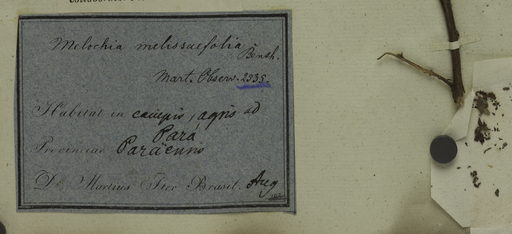 Melochia melissaefolia Benth.
Mart. Observ. 2335.
Habitat in campis, agris ad
Pará
Provinciae Paräensis
D. Martius Iter Brasil. Aug